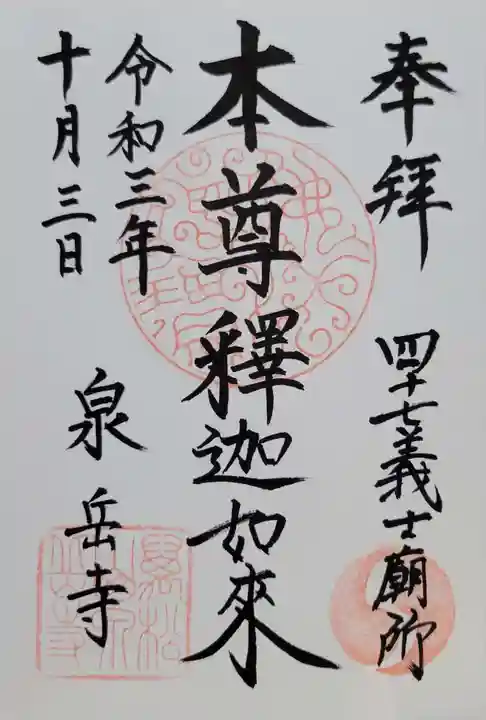 奉拝
四十七義士廟所
本尊釋迦如來
令和三年
十月三日
泉岳寺